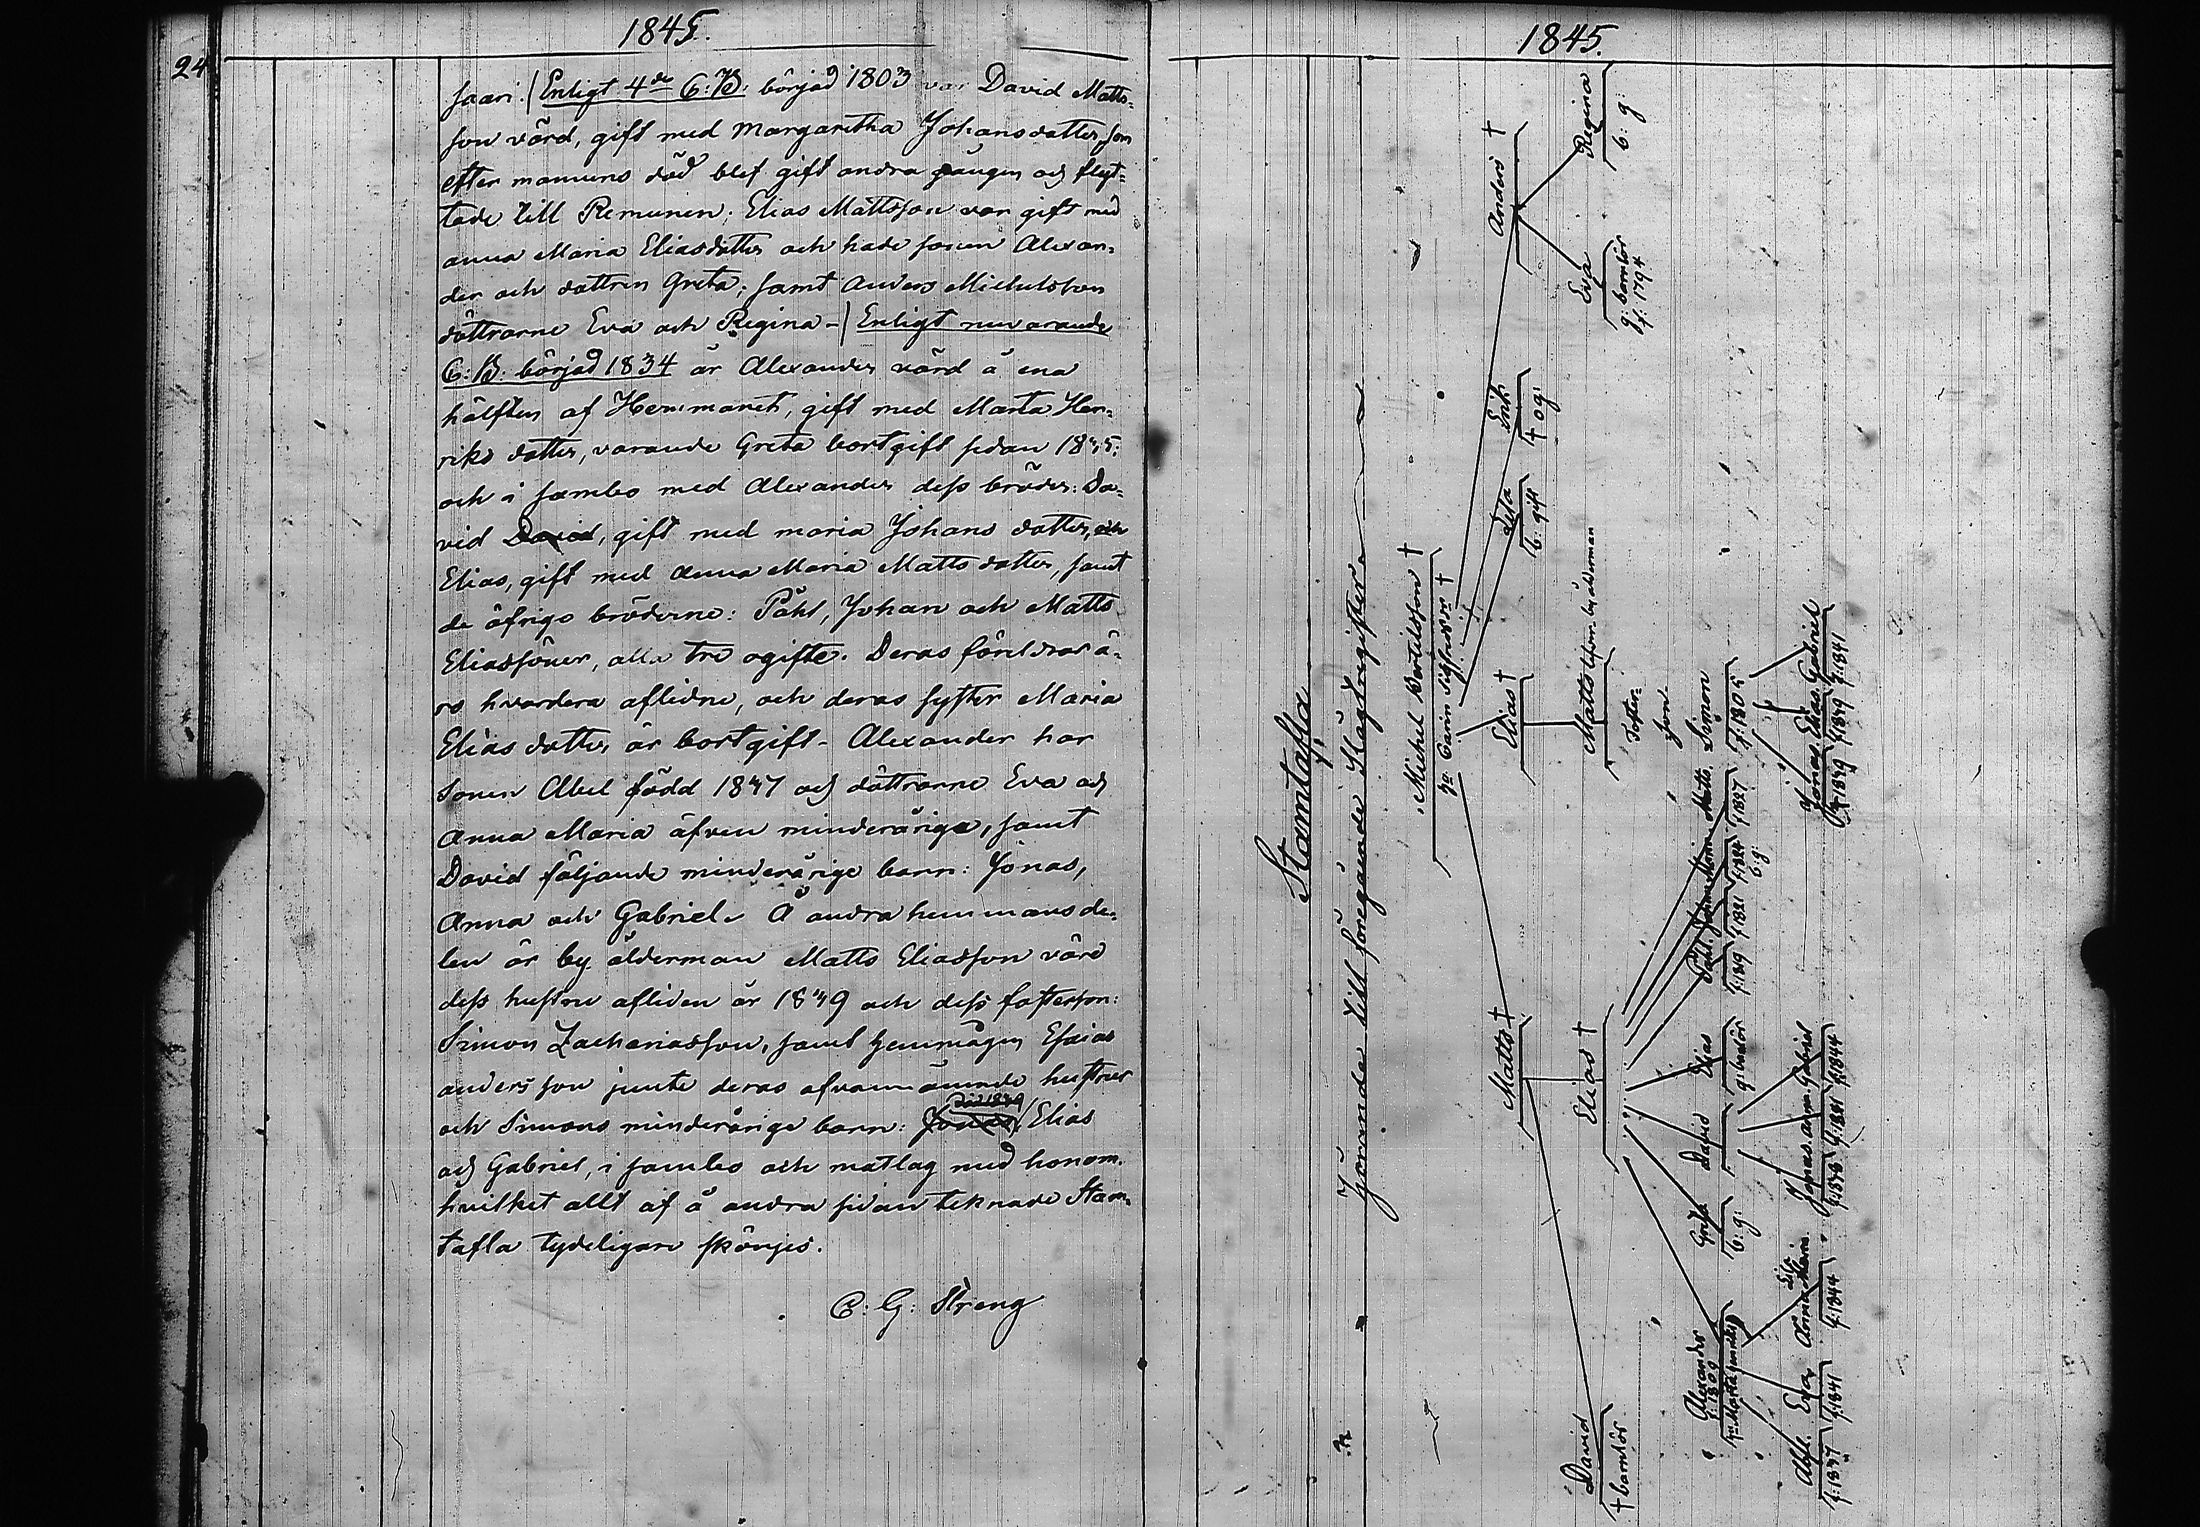 24
1845.
saari./ Enligt 4de C:B: börjad 1803 var David Matts-
son värd, gift med Margaretha Johansdotter, som
efter mannens död blef gift andra gången och flyt-
tade till Remunen; Elias Mattsson var gift med
Anna Maria Eliasdotter och hade sonen Alexan-
der och dottren Greta; samt Anders Michelsson
döttrarne Eva och Regina -/ Enligt nuvarande
C:B: börjad 1834 är Alexander värd å ena
hälften af Hemmanet, gift med Marta Hen-
riks dotter, varande Greta bortgift sedan
och i sambo med Alexander dess bröder: Da-
vid David, gift med Maria Johans dotter, och
Elias, gift med Anna Maria Matts dotter, samt
de öfrige bröderne: Påhl, Johan och Matts
Eliassöner, alla tre ogifte. Deras föräldrar ä-
ro hvardera aflidne, och deras syster Maria
Elias dotter är bortgift - Alexander har
sonen Abel född 1837 och döttrarne Eva och
Anna Maria äfven minderåriga, samt
David följande minderårige barn: Jonas,
Anna och Gabriel. Å andra hemmansde-
len är by ålderman Matts Eliasson värd
dess hustru afliden år 1839 och dess fosterson:
Simon Zachariasson, samt hemmågen Esaias
Andersson jemte deras ofvannämnde hustrur
och Simons minderårige barn: Jonas / Elias
död 1839
och Gabriel, i sambo och matlag med honom.
hvilket allt af å andra sidan teknade Stam-
tafla tydeligare skönjes.
C: G: Streng
1845.
Stamtafla
hörande till föregående Slägtregister.
Michel Bertilsson †
h:u Carin Sigfredsdr †
Matts †
Elias †
Lisa
b: gift
Erik
† og:
Anders †
David
† barnlös
Elias †
Mattsson. by ålderman
Foster-
son
Eva
g: barnlös
f: 1794
Regina
b: g:
Alexander
f: 1809
h:u Marta Henriksdr
Greta
b: g:
David
Elias
g: barnlös
Påhl
f: 1819
Johan
f: 1821
Maria
f: 1824
b: g:
Matts
f: 1827
Simon
f: 1805
Abel
f: 1837
Eva
f: 1841
Anna Maria
f: 1844
Jonas
f: 1838
Anna
f: 1841
Gabriel
f: 1844
Jonas
† 1839
Elias
f: 1839
Gabriel
f: 1841